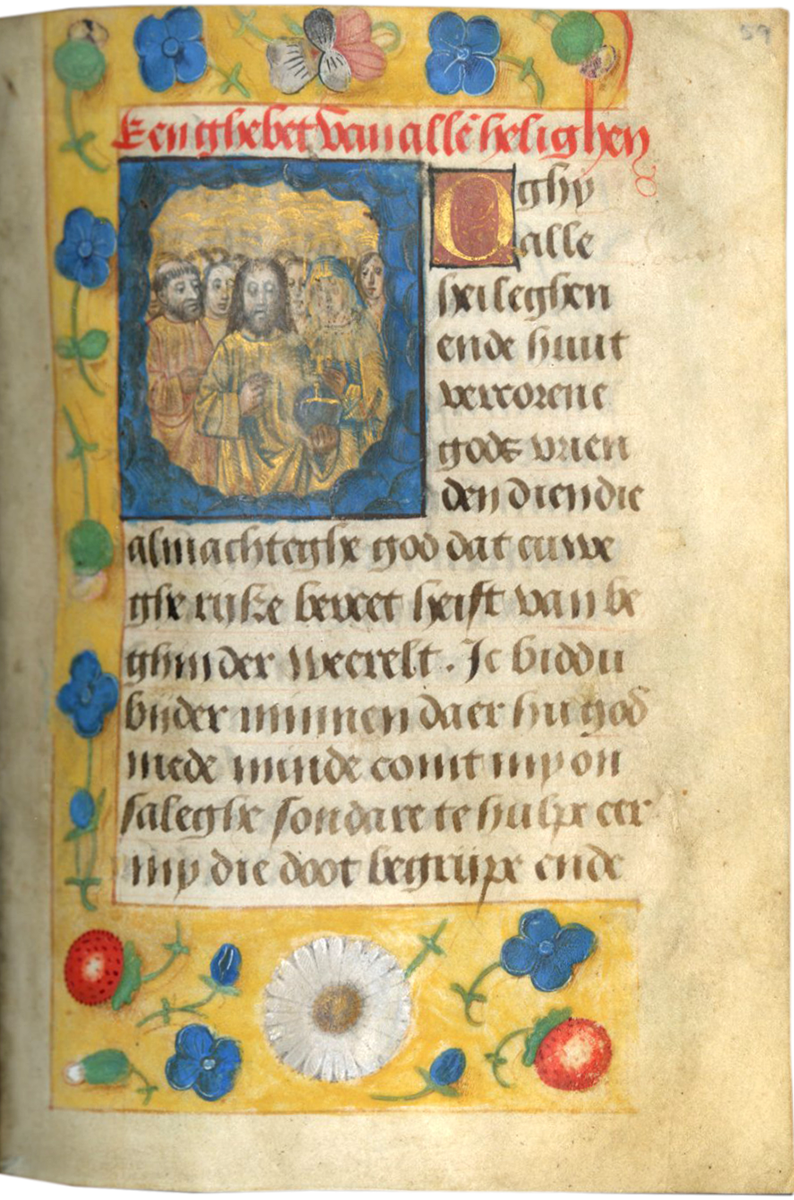 59
Een ghebet van allē helighen
O ghy
alle
heileghen
ende huut
vercorene
gods vrien
den dien die
almachteghe god dat euwe
ghe rijke bereet heift van be
ghin der weerelt. Ic biddu
bijder minnen daer hu god
mede minde comt my on
saleghe sondare te hulpe eer
my die doot begrijpe ende